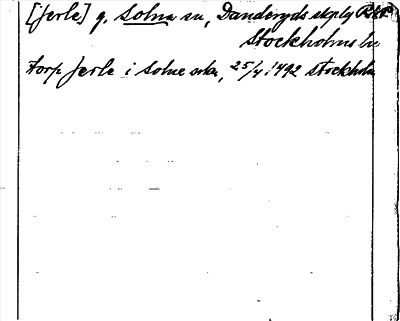 [Jerle] g. Solna sn, Danderyds skplg
Stockholms län
torp Jerle i Solne sokn, 25/4 1492 Stockholm